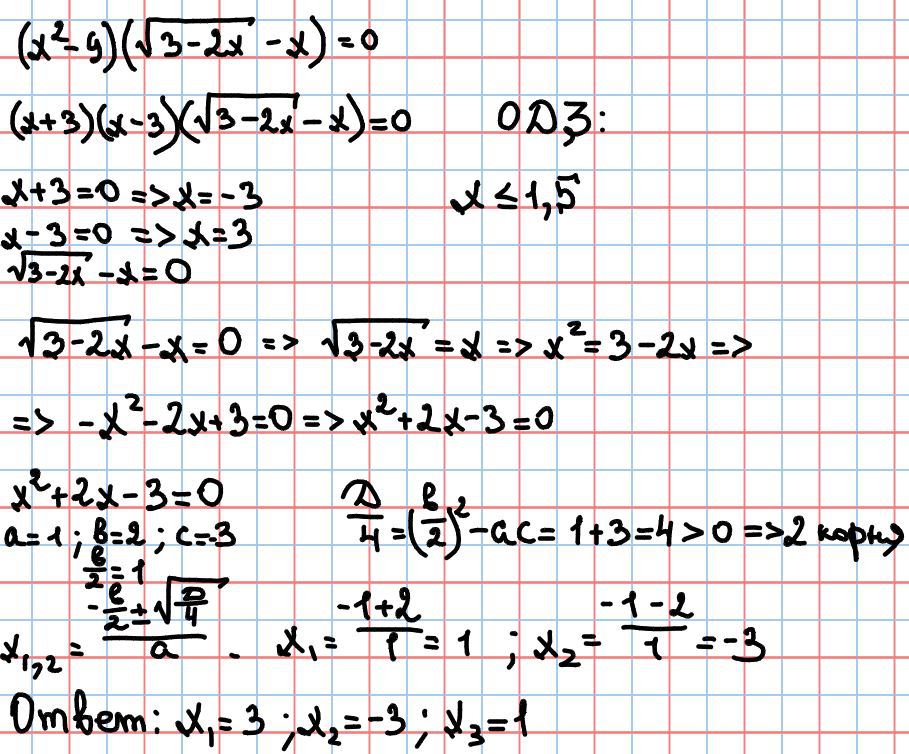 (x²-9)(√(3-2x) - x) = 0
(x+3)(x-3)(√(3-2x) - x) = 0 ОДЗ:
x+3=0 => x=-3 x ≤ 1,5
x-3=0 => x=3
√(3-2x) - x = 0
√(3-2x) - x = 0 => √(3-2x) = x => x² = 3-2x =>
=> -x²-2x+3=0 => x²+2x-3=0
x²+2x-3=0 D/4 = (в/2)² - ac = 1+3=4>0 => 2 корня
a=1; в=2; c=-3
в/2=1
x₁,₂ = (-в/2 ± √(D/4))/a . x₁ = (-1+2)/1 = 1 ; x₂ = (-1-2)/1 = -3
Ответ: x₁=3 ; x₂=-3 ; x₃=1